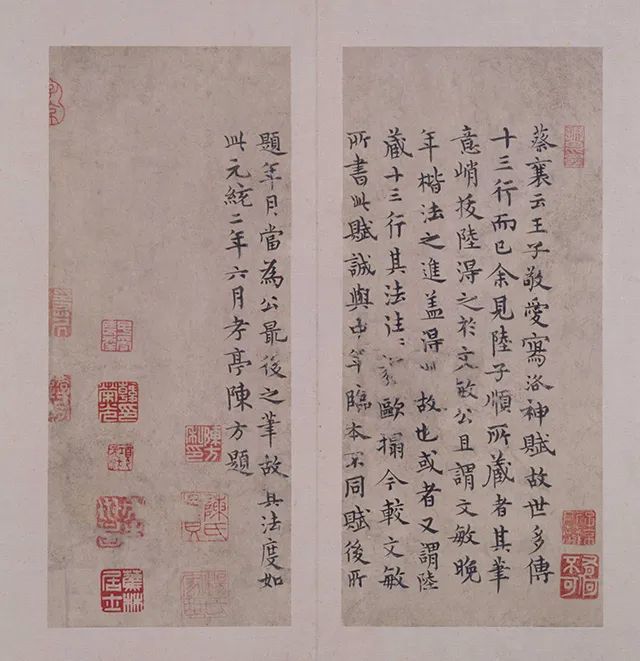 蔡襄云王子敬愛寫洛神賦故世多傳
十三行而已余見陸子順所藏者其筆
意峭拔陸得之於文敏公且謂文敏晚
年楷法之進盖得此故也或者又謂陸
藏十三行其法注歐搨今較文敏
所書此賦誠與中年臨本不同賦後所
題年月當為公最後之筆故其法度如
此元統二年六月孝亭陳方題
陳方
陳氏
蕉林
居士